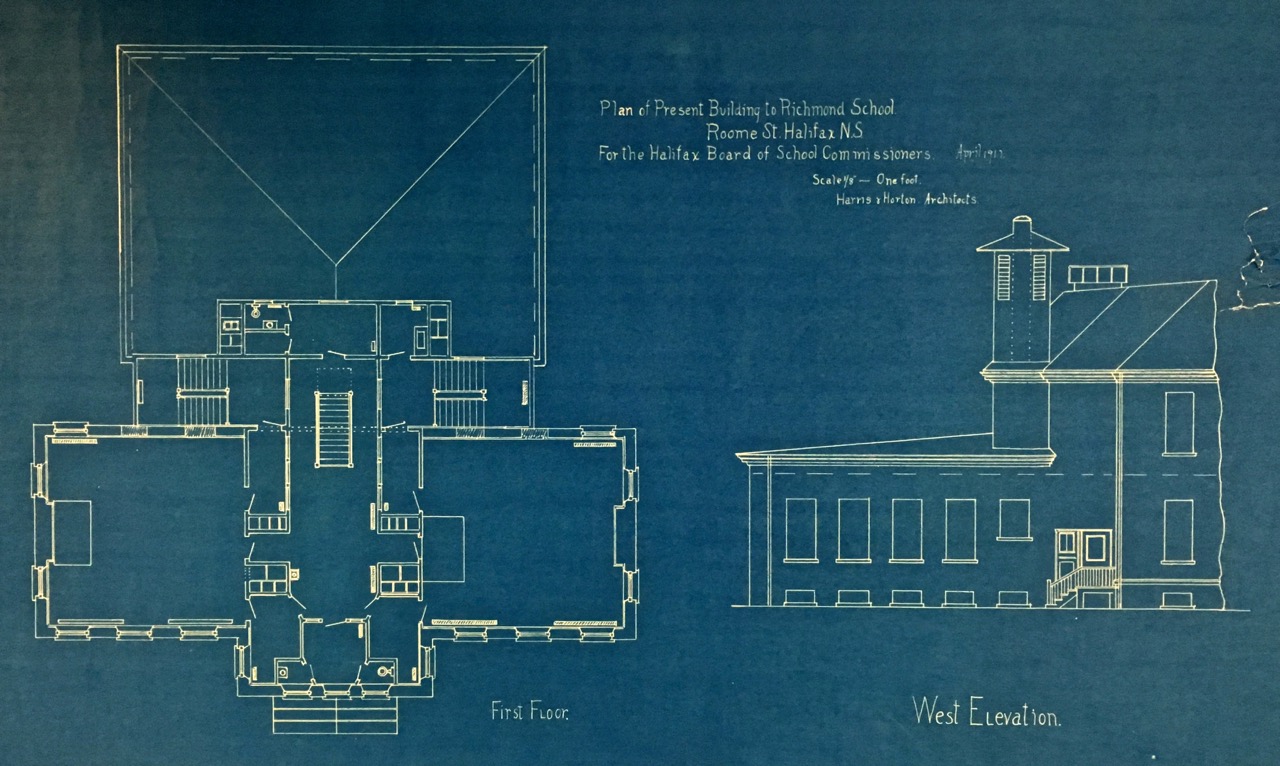 Plan of Present Building to Richmond School.
Roome St. Halifax N.S
For the Halifax Board of School Commissioners. April
Scale 1/8" — One foot.
Harris & Horton Architects
First Floor.
West Elevation.